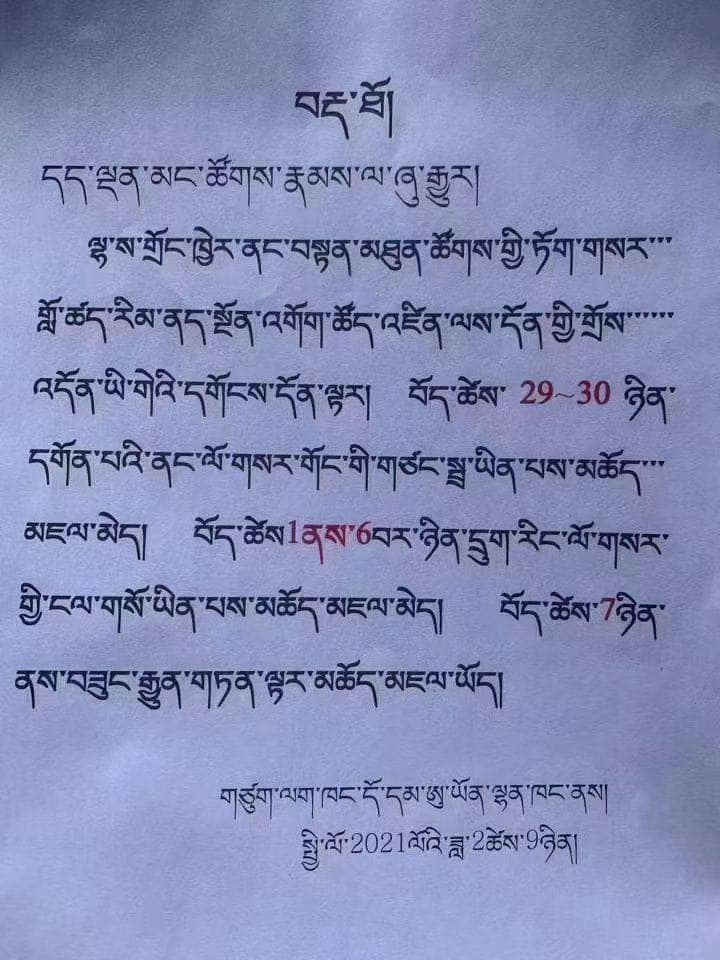 བརྡ་ཐོ།
དད་ལྡན་མང་ཚོགས་རྣམས་ལ་ཞུ་རྒྱུར།
ལྷ་ས་གྲོང་ཁྱེར་ནང་བསྟན་མཐུན་ཚོགས་ཀྱི་ཏོག་གསར་་་
གློ་ཚད་རིམ་ནད་སྔོན་འགོག་ཚོད་འཛིན་ལས་དོན་གྱི་གྲོས་་་་་་
འདོན་ཡི་གེའི་དགོངས་དོན་ལྟར། བོད་ཚེས་ 29~30 ཉིན་
དགོན་པའི་ནང་ལོ་གསར་གོང་གི་གཙང་སྦྲ་ཡིན་པས་མཆོད་་་
མཇལ་མེད། བོད་ཚེས1ནས་6བར་ཉིན་དྲུག་རིང་ལོ་གསར་
གྱི་ངལ་གསོ་ཡིན་པས་མཆོད་མཇལ་མེད། བོད་ཚེས་7ཉིན་
ནས་བཟུང་རྒྱུན་གཏན་ལྟར་མཆོད་མཇལ་ཡོད།
གཙུག་ལག་ཁང་དོ་དམ་ཨུ་ཡོན་ལྷན་ཁང་ནས།
སྤྱི་ལོ་2021ལོའི་ཟླ་2ཚེས་9ཉིན།